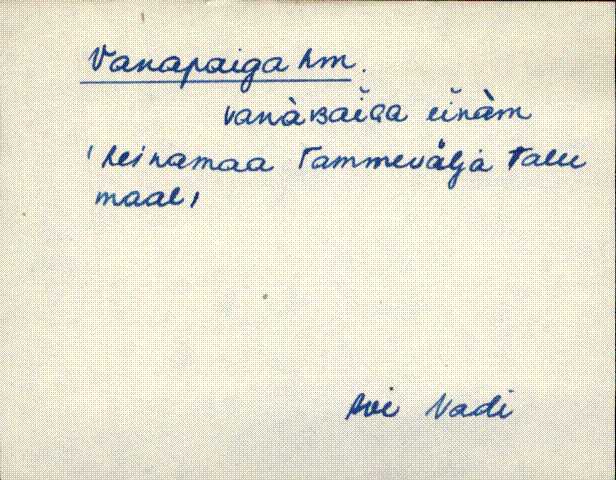 Vanapaiga hm.
vanàʙaĭɢa eĭnàm
'heinamaa Tammevälja talu
maal,
Avi Vadi